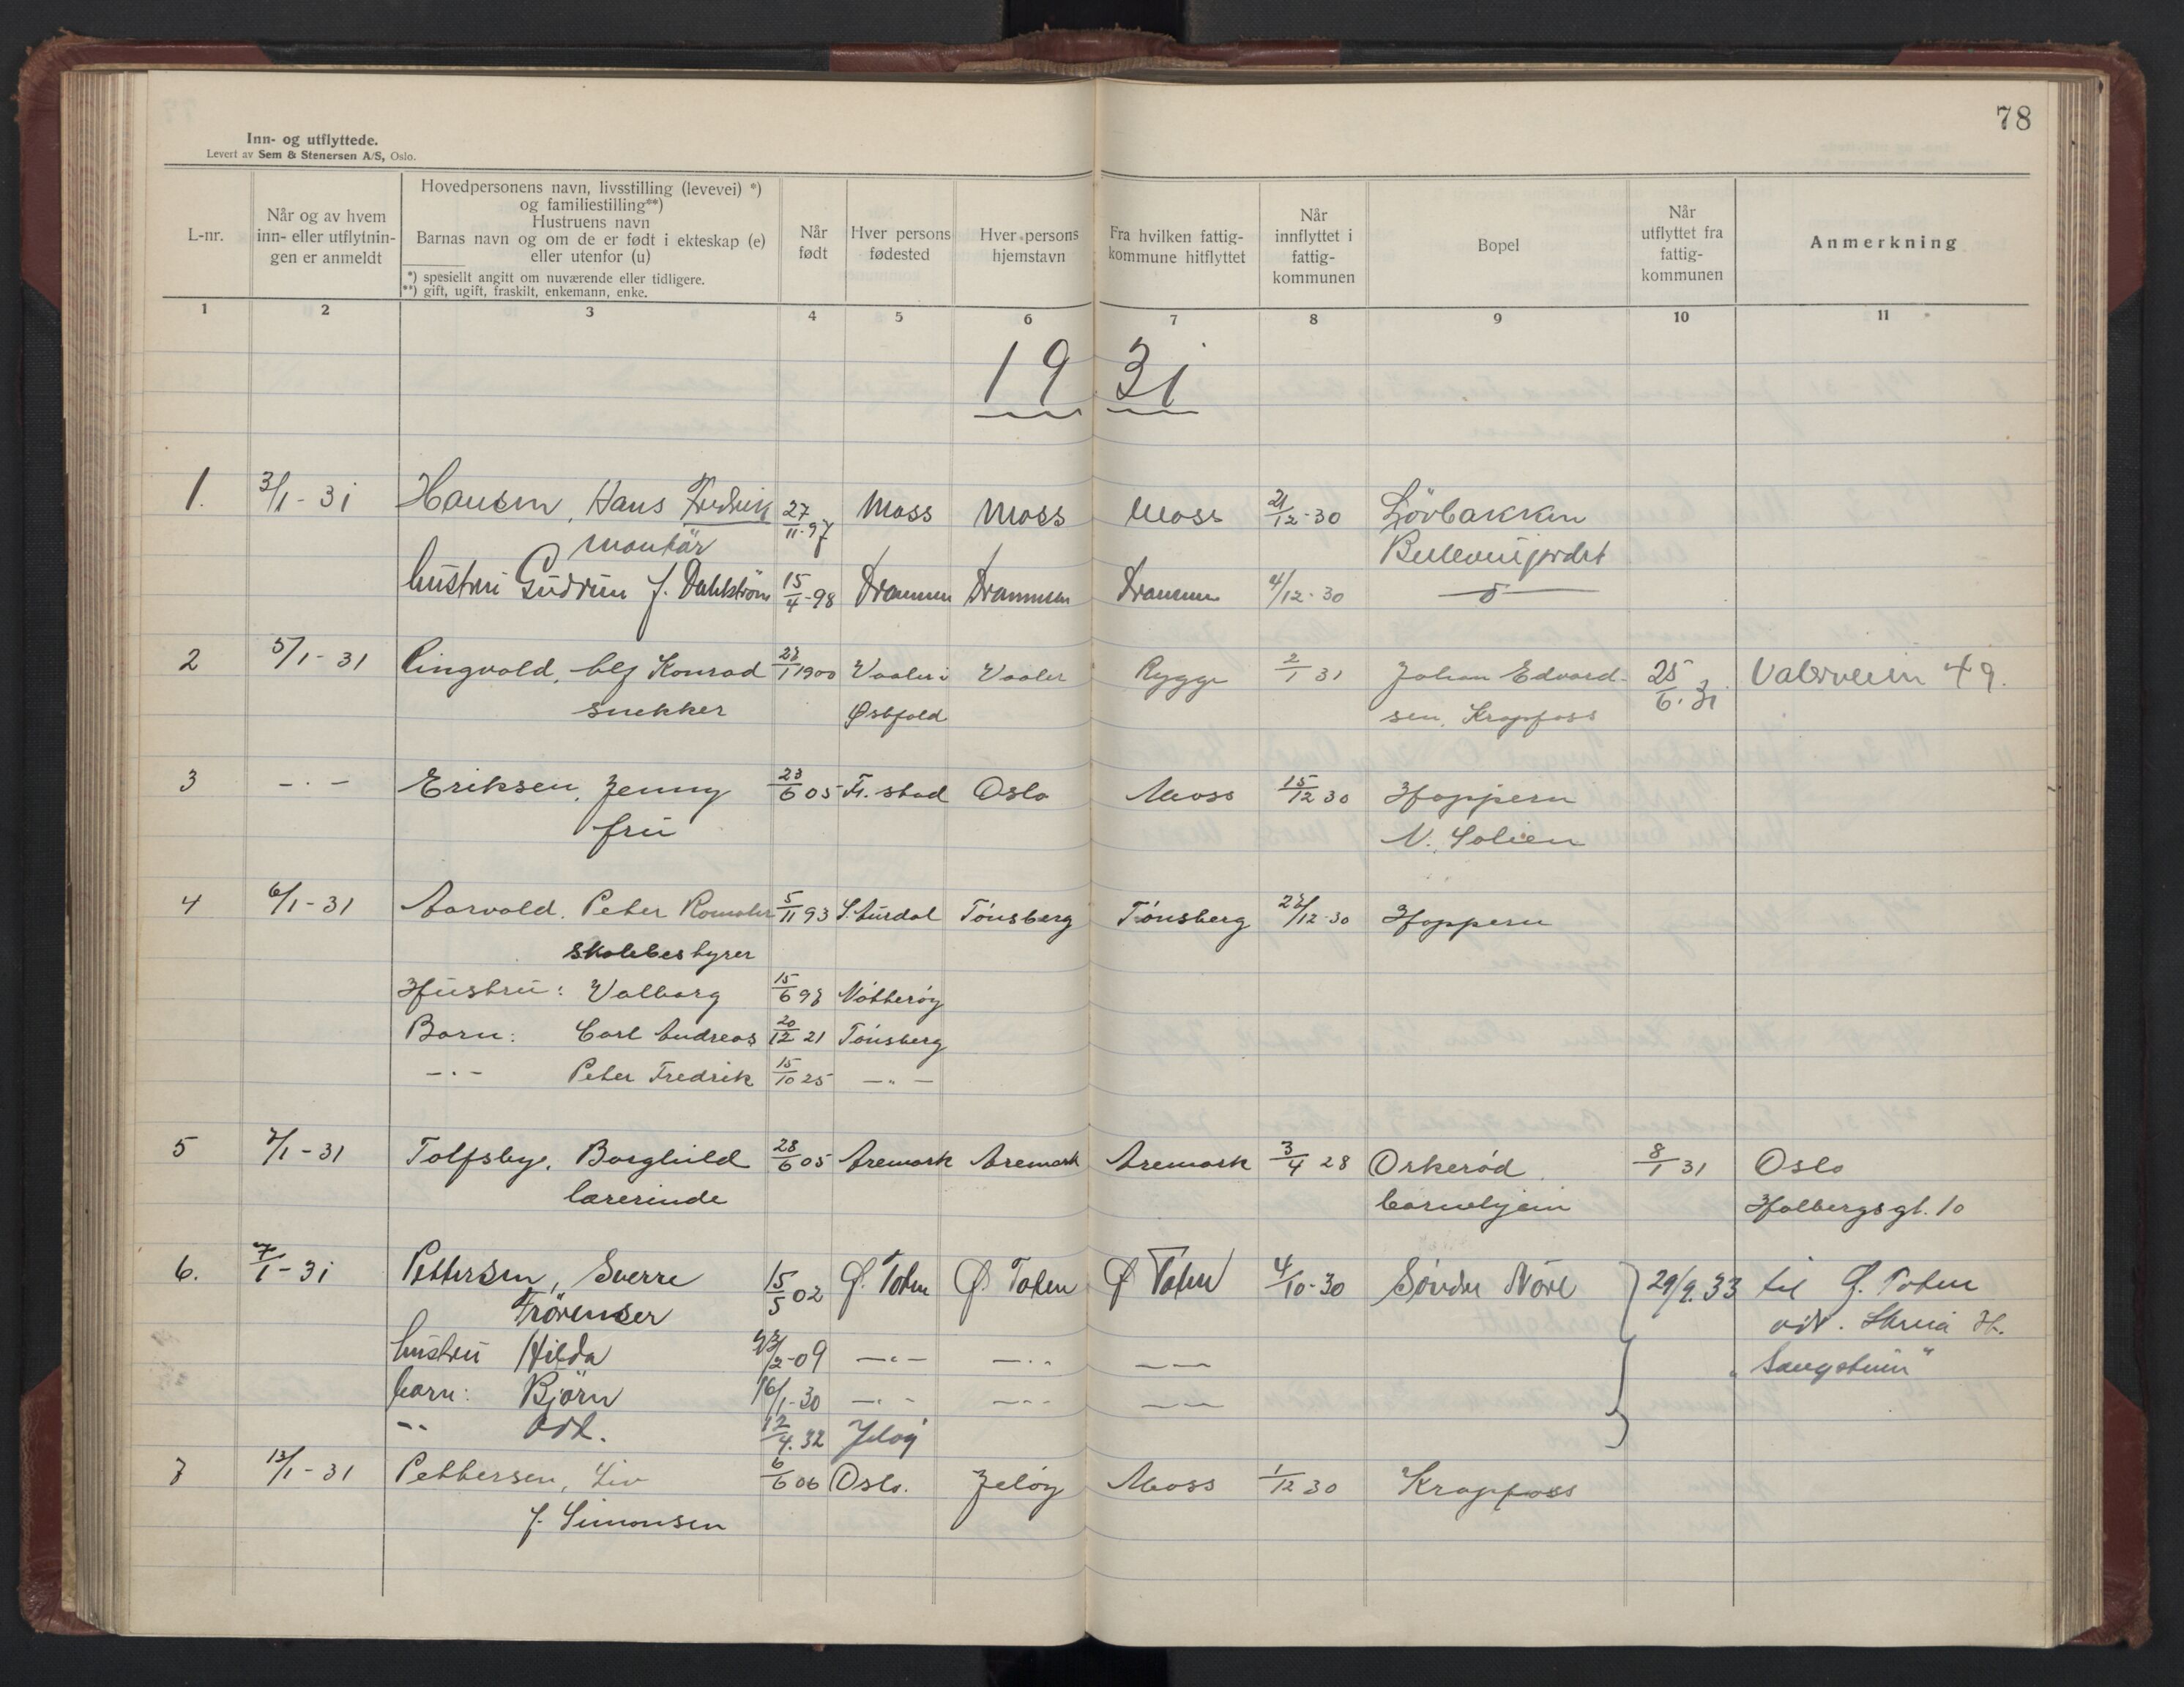 78
Inn- og utflyttede.
Levert av Sem & Stenersen A/S, Oslo.
L-nr.
Når og av hvem
inn- eller utflytnin-
gen er anmeldt
Hovedpersonens navn, livsstilling (levevei) *)
og familiestilling**)
Hustruens navn
Barnas navn og om de er født i ekteskap (e)
eller utenfor (u)
*) spesiellt angitt om nuværende eller tidligere.
**) gift, ugift, fraskilt, enkemann, enke.
Når
født
Hver persons
fødested
Hver persons
hjemstavn
Fra hvilken fattig-
kommune hitflyttet
Når
innflyttet i
fattig-
kommunen
Bopel
Når
utflyttet fra
fattig-
kommunen
Anmerkning
1 2 3 4 5 6 7 8 9 10 11
1931
1. 3/1-31 Hansen, Hans Fredrik 27/11-97 Moss Moss Moss 21/12-30 Lövbakken
montör
hustru Gudrun f. Dahlström 15/4-98 Drammen Drammen Drammen 4/12-30
2 5/1-31 Ringvold, Konrad 1900 Vaaler i Vaaler Rygge 2/1 31 Johan Edvard- 25/6.31 49.
snekker Østfold sen, Krapfoss
3 -.- Eriksen, Jenny 23/6 05 Fr.stad Oslo Moss 15/12 30 Hoppern
fru N. Solien
4 6/1-31 Aarvold, Peter 5/11 93 S. Aurdal Tönsberg Tönsberg 27/12-30 Hoppern
skolebestyrer
Hustru: Valborg 15/6 97 Nötteröy
Barn: Carl Andreas 20/12 21 Tönsberg
-.- Peter Fredrik 15/10 25 -"-
5 7/1-31 Tolfsby, Borghild 28/6 05 Aremark Aremark Aremark 3/4 28 Orkeröd 8/1 31 Oslo
lærerinde barnehjem Holbergsgt. 10
6. 7/1-31 Pettersen, Sverre 15/5 02 Ø. Toten Ø. Toten Ø Toten 4/10-30 Söndre 29/9.33 til Ø. Toten
hustru Hilda 2-09 -"- -.. --
barn: Björn 16/1-30 -.- -.- --
-- Odd. 12/4.32 Jelöy
7 13/1-31 Pettersen, Liv 6/6 06 Oslo. Jelöy Moss 1/12 30 Krapfoss
f. Simonsen